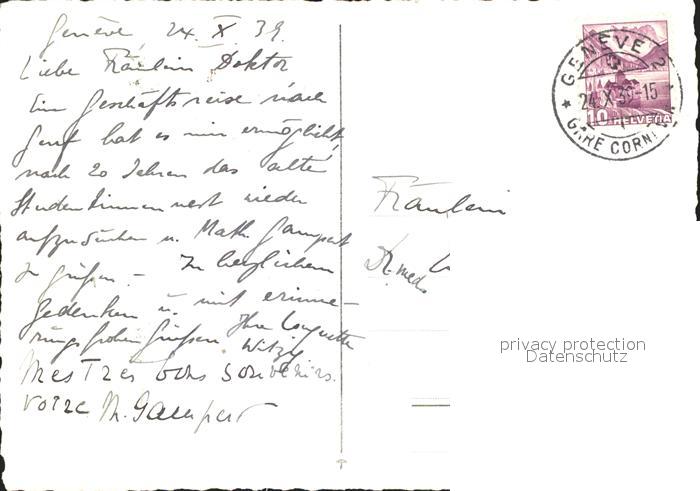 Genève 24. X 39.
Liebe Fräulein Doktor
Eine Geschäftsreise nach
Genf hat es mir ermöglicht,
nach 20 Jahren das alte
Studentinnennest wieder
aufzusuchen u. Math. Gampert
zu grüßen. – In herzlichem
Gedenken u. mit erinne-
rungsfrohen Grüßen Ihre
Witzig
Mes Très bons souvenirs.
votre M. Gampert
GENÈVE 2
24.X.39-15
GARE CORN
10 HELVETIA
Fräulein
Dr. med.
privacy protection
Datenschutz